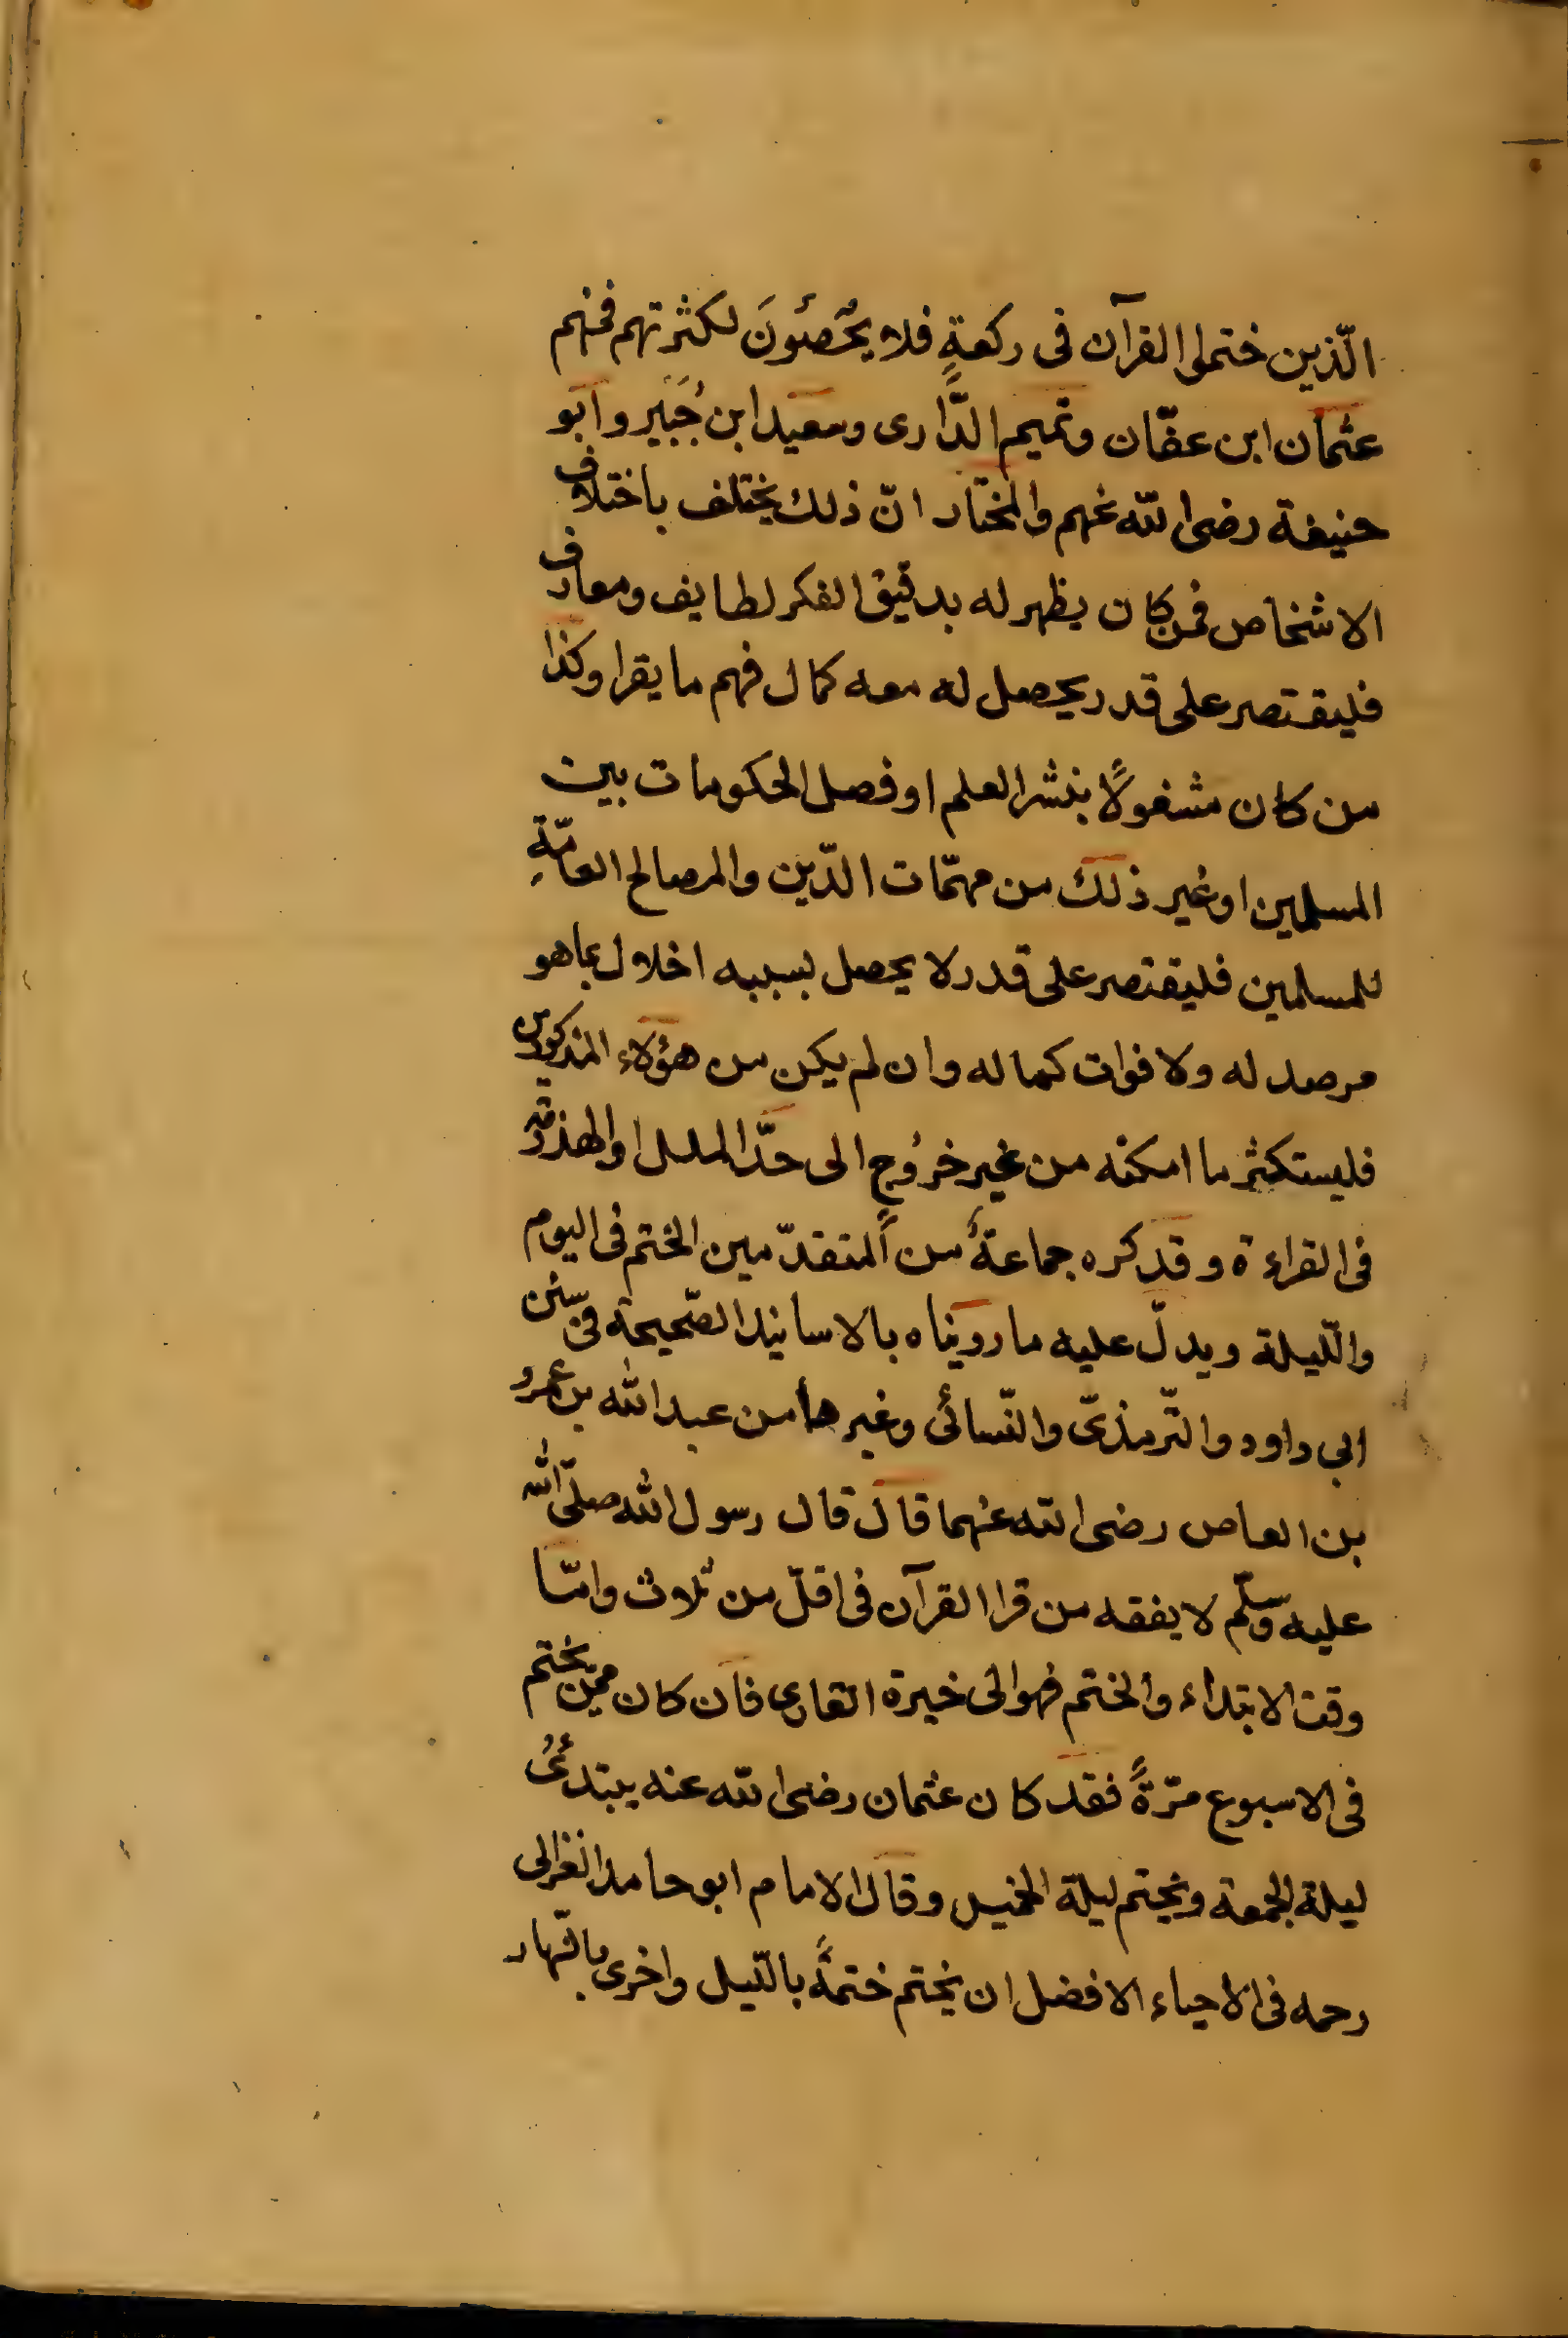 الّذين ختموا القرآن فى ركعةٍ فلا يُحْصَئونَ لكثرتهم فمنهم
عثمان ابن عفّان وتميم الدّارى وسعيد ابن جُبَير وابو
حنيفة رضى الله عنهم والمختار انّ ذلك يختلف باختلاف
الاشخاص فمن كان يظهر له بدقيق الفكر لطايف ومعارف
فليقتصر على قدر يحصل له معه كمال فهم ما يقرا وكذا
من كان مشغولًا بنشر العلم او فصل الحكومات بين
المسلمين او غير ذلك من مهمّات الدّين والمصالح العامّةِ
للمسلمين فليقتصر على قدر لا يحصل بسببه اخلال بما هو
مرصد له ولا فوات كماله وان لم يكن من هؤلاء المذكورين
فليستكثر ما امكنه من غير خروجٍ الى حدّ الملل او الهذرمة
فى القراءة وقد كره جماعةٌ من المتقدّمين الختم فى اليوم
والّليلة ويدلّ عليه ما رويناه بالاسانيد الصّحيحة فى سنن
ابى داود والتّرمذىّ والنّسائى وغيرها من عبد الله بن عمرو
بن العاص رضى الله عنهما قال قال رسول الله صلّى الله
عليه وسلّم لا يفقه من قرا القرآن فى اقلّ من ثلاث وامّا
وقت الابتداء والختم فهو الى خيرة القارى فان كان ممّن يختم
فى الاسبوع مرّةً فقد كان عثمان رضى الله عنه يبتدئُ
ليلة الجمعة ويختم ليلة الخميس وقال الامام ابو حامد الغزالى
رحمه فى الاحياء الافضل ان يختم ختمةً بالّليل واخرى بالنّهار